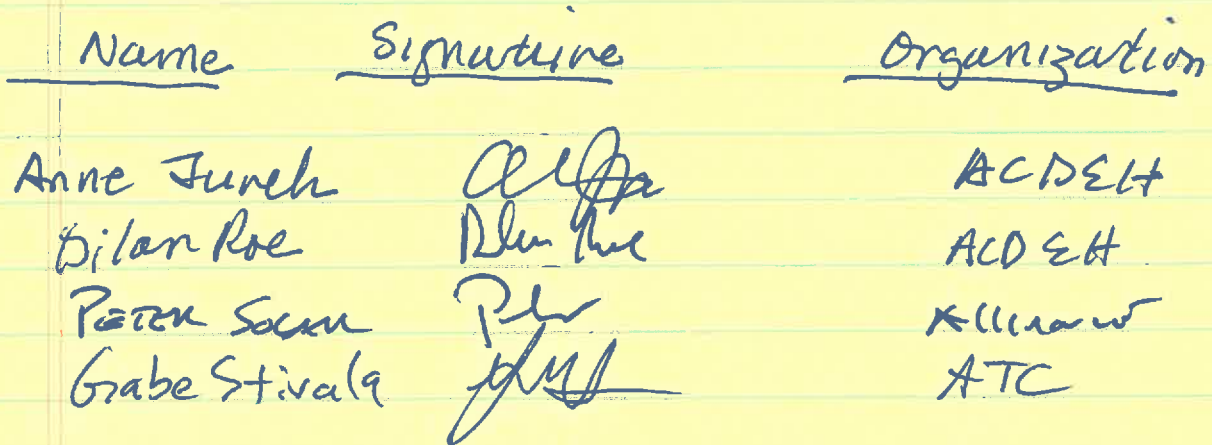 Name Signature Organization
Anne Jurek ACDEH
Dilan Roe Dilan Roe ACDEH
PETER
Gabe Stivala ATC